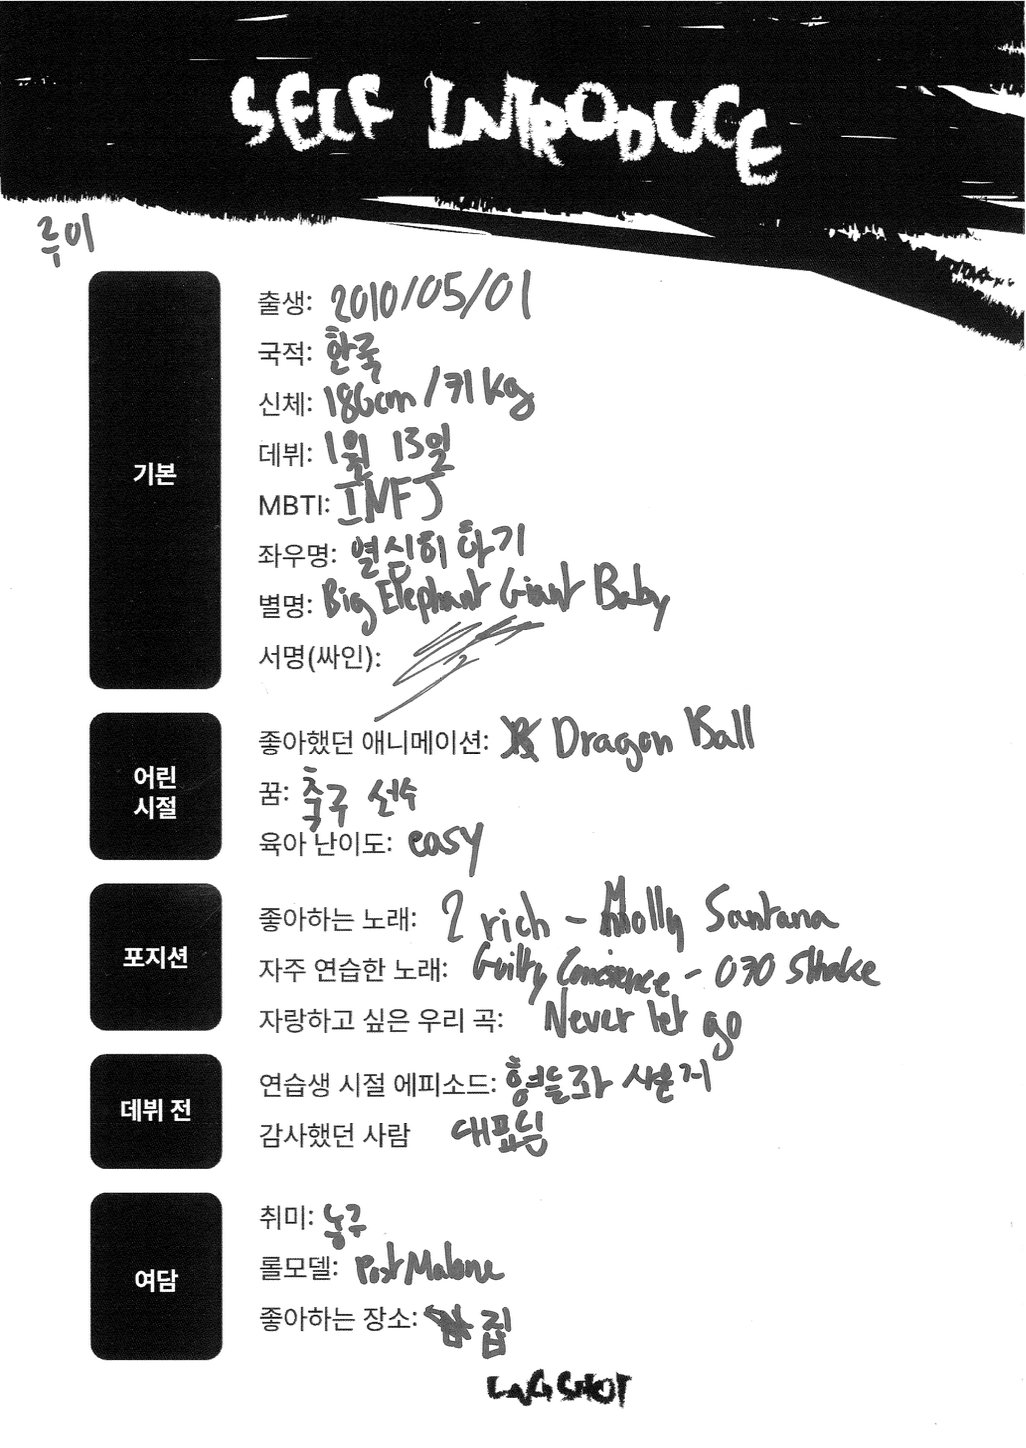 SELF INTRODUCE
루이
기본
출생: 2010/05/01
국적: 한국
신체: 186cm / 키kg
데뷔: 1월 13일
MBTI: INFJ
좌우명: 열심히 하기
별명: Big Elephant Giant Baby
서명(싸인):
어린
시절
좋아했던 애니메이션: Dragon Ball
꿈: 축구 선수
육아 난이도: easy
포지션
좋아하는 노래: 2 rich - Molly Santana
자주 연습한 노래: Guilty Conscience - 070 Shake
자랑하고 싶은 우리 곡: Never let go
데뷔 전
연습생 시절 에피소드: 형들과 싸운거
감사했던 사람 대표님
여담
취미: 농구
롤모델: Post Malone
좋아하는 장소: 집
LNGSHOT